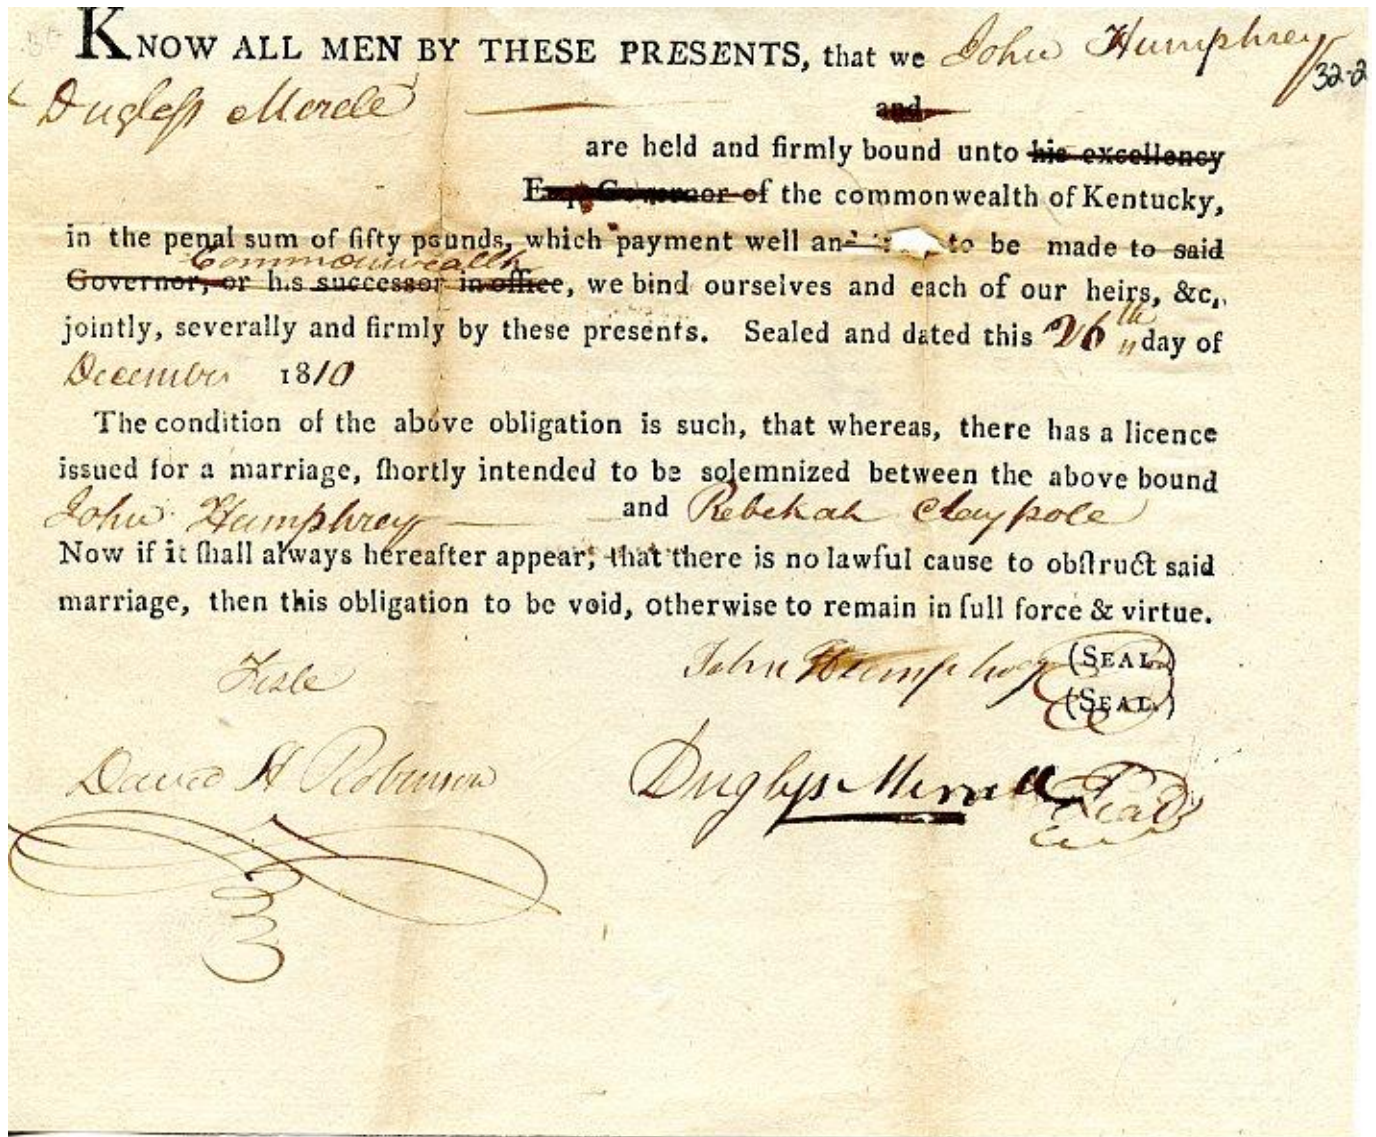 KNOW ALL MEN BY THESE PRESENTS, that we John Humphrey
32-2
Dugless Morele and
are held and firmly bound unto his excellency
Governor of the commonwealth of Kentucky,
in the penal sum of fifty pounds, which payment well and to be made to said
Commonwealth
Governor, or his successor in office, we bind ourselves and each of our heirs, &c,
jointly, severally and firmly by these presents. Sealed and dated this 26th day of
December 1810
The condition of the above obligation is such, that whereas, there has a licence
issued for a marriage, ſhortly intended to be solemnized between the above bound
John Humphrey and Rebekah Claypole
Now if it ſhall always hereafter appear, that there is no lawful cause to obſtruct said
marriage, then this obligation to be void, otherwise to remain in full force & virtue.
John Humphrey (SEAL)
(SEAL.)
Teste
David H Robinson
Dugless Merrell Seal